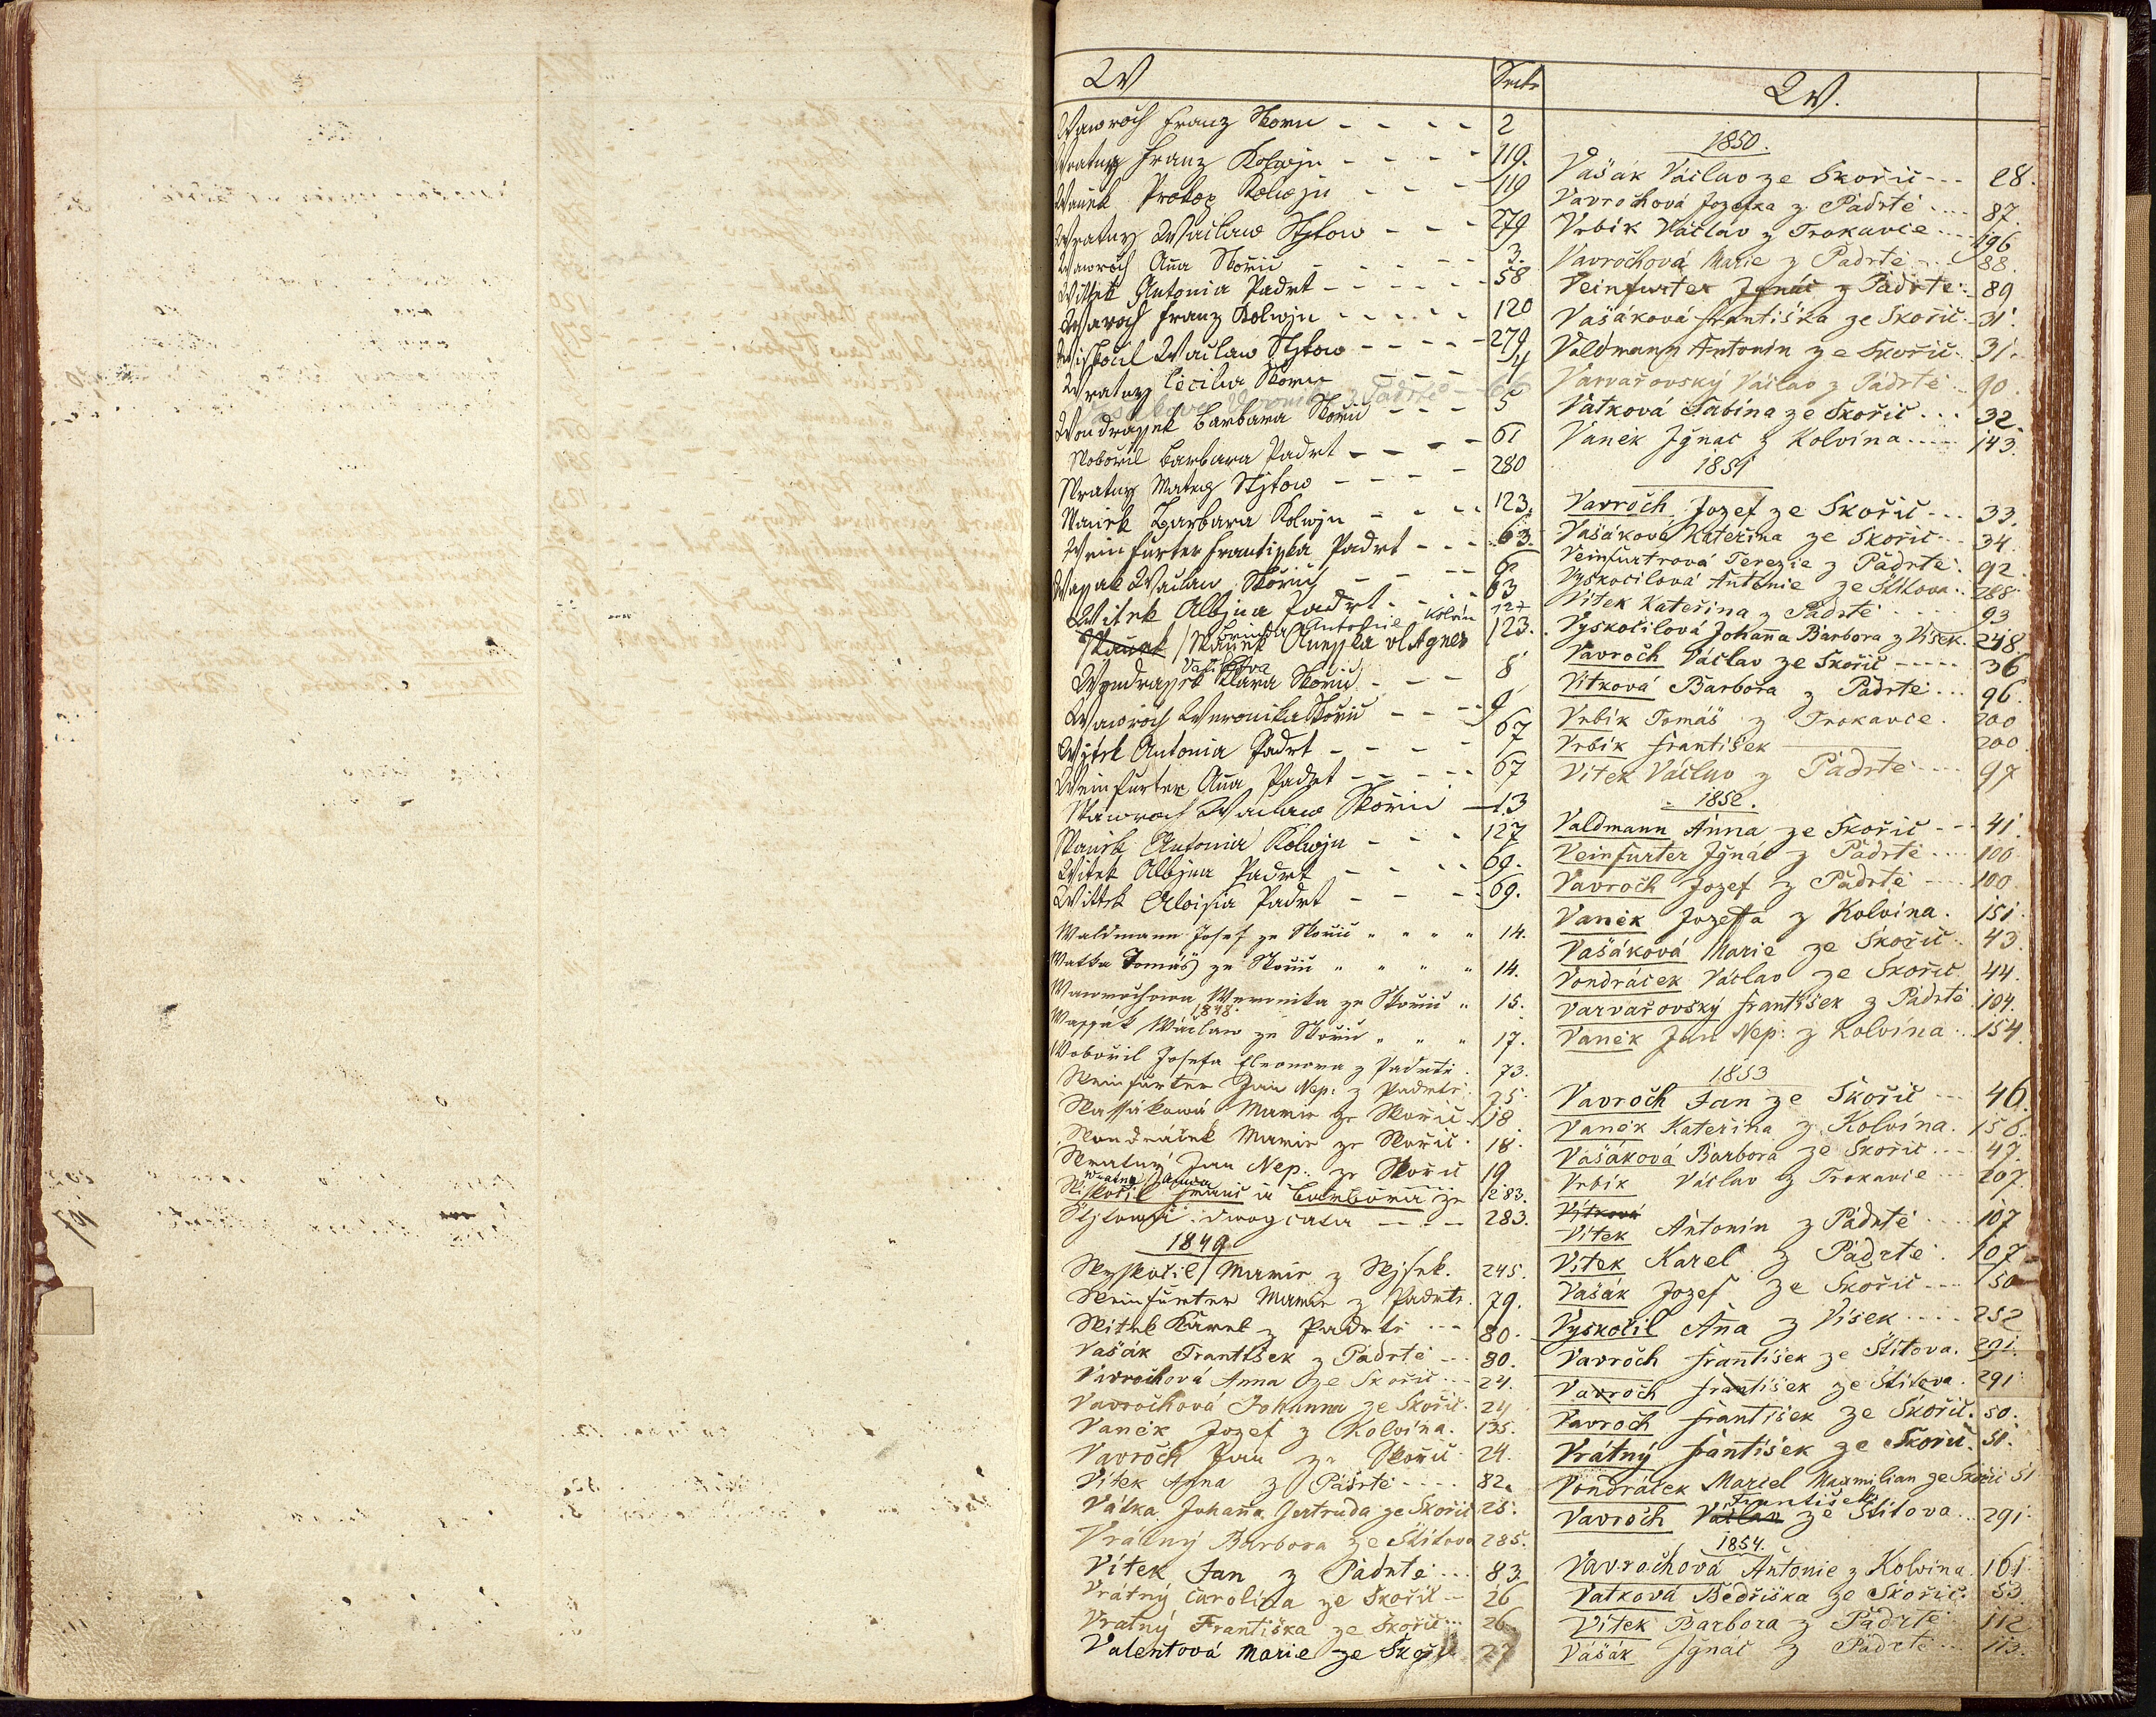 W
Seite
Wawroch Franz Skoric - - - - 2
Wratny Franz Kolwjn - - - - 119.
Waniek Prokop Kolwjn - - - 119
Wratny Waclaw Stjtow - - - 279
Wawroch Aña Skořic - - - - 3.
Wittek Antonia Padrt - - - - - 58
Wawroch Franz Kolwjn - - - - - 120
Wiskocil Waclaw Stjtow - - - - 279
Wratny Cecilia Skoric - - - 4
Veronika z Padrtě - 66
Wondrassek Barbara Skořic - - - 5
Wobořil Barbara Padrt - - - - 61
Wratny Mateg Stjtow - - - - 280
Waniek Barbara Kolwjn - - - - 123.
Weinfurter Frantiska Padrt - - - 63.
Wassak Waclaw Skořic - - - - 6
Witek Albjna Padrt - - - - 63
Antonie Kolvín 127
Waniek Waniek Aneska vl Agnes 123.
Vašíčkova
Wondrassek Klara Skořic - - - 8
Wawroch Weronika Skořic - - - 9
Wjtek Antonia Padrt - - - - - 67
Weinfurter Aña Padrt - - - - - 67
Wawroch Waclaw Skořic - 13
Waniek Antonia Kolwjn - - - 127
Witek Albjna Padrt - - - - 69.
Wittek Aloisia Padrt - - - - 69.
Waldmann Josef ze Skořic " " " " 14.
Watka Tomáš ze Skořic " " " " 14.
Wawrochowa Weronika ze Skořic " 15.
1848.
Wassák Wáclaw ze Skořic " " " 17.
Wobořil Josefa Eleonora z Padrtě . 73.
Weinfurter Jan Nep: z Padrtě 75.
Wassákowá Marie ze Skořic 18
Wondráček Marie ze Skořic . 18.
Wratný Jan Nep. ze Skořic 19
Wratny Anna
Wiskočil Franc a Barbora ze 283.
Stjtowa dwogčata - - . - 283.
1849
Wyskočil Marie z Wjsek. 245.
Weinfurter Marie z Padrtě. 79.
Witek Karel z Padrtě - - - 80.
Vašák Františsek z Padrtě - - - 80.
Vavročhová Anna ze Skořic - - - 24.
Vavročhová Johanna ze Skořic . 24
Vaněk Jozef z Kolvína. 135.
Vavroch Jan ze Skořic 24.
Vítek Anna z Padrtě - - - - 82.
Vátka Johaña Jertruda ze Skořic 25.
Vrátný Barbora ze Štítova 285.
Vítek Jan z Padrtě - - - 83.
Vrátný Carolina ze Skořic - 26
Vratný Františka ze Skořic - - - 26.
Valentová Marie ze Skořic 27
W.
1850.
Vašák Václav ze Skořic - - - 28.
Vavrochová Jozefka z Padrtě - - - - 87.
Vrbík Václav z Trokavce - - - - 196
Vavrochová Marie z Padrtě - - 88.
Veinfurter Ignác z Padrtě - - 89
Vašáková Františka ze Skořic - 31.
Valdmann Antonín ze Skořic. 31.
Varvařovský Václav z Padrtě - - 90
Vatková Sabina ze Skořic . . . 32.
Vaněk Jgnac z Kolvína - - - - 143.
1851
Vavroch Jozef ze Skořic - - - 33.
Vašáková Kateřina ze Skořic - - - 34.
Veinfurtrová Terezie z Padrtě. 92.
Vyskočilová Antonie ze Štítova . . 288
Vítek Kateřina z Padrtě - - - - 93
Vyskočilová Johaña Barbora z Vísek. 248
Vavroch Václav ze Skořic - - - - - 36
Vítková Barbora z Padrtě . . . 96.
Vrbík Tomáš z Trokavce . 200
Vrbík František 200
Vítek Václav z Padrtě - - - - 97
1852.
Valdmann Anna ze Skořic - - - 41.
Veinfurter Jgnác z Padrtě - - - - 100
Vavroch Jozef z Padrtě - - - - 100
Vaněk Jozefa z Kolvína . 151.
Vašáková Marie ze Skořic . . 43.
Vondráček Václav ze Skořic 44.
Varvařovský František z Padrtě 104.
Vaněk Jan Nep: z Kolvína . . 154.
1853
Vavroch Jan ze Skořic - - - 46.
Vaněk Kateřina z Kolvína . 156.
Vašáková Barbora ze Skořic - - - 47.
Vrbík Václav z Trokavce - - - - 207.
Vítková
Vítek Antonín z Padrtě - - - - 107
Vítek Karel z Padrtě . 107
Vašák Jozef ze Skořic - - - 50
Vyskočil Aña z Vísek - - - - 252
Vavroch František ze Štítova. 291.
Vavroch František ze Štítova. 291
Vavroch František ze Skořic. 50.
Vrátný František ze Skořic. 51.
Vondráček Marcel Maxmilian ze Skořic 51
František
Vavroch Václav ze Štítova. . . 291.
1854.
Vavrochová Antonie z Kolvína. 161.
Vatková Bedřiška ze Skořic. 53.
Vítek Barbora z Padrtě 112
Vašák Jgnác z Padrtě - - - 113.